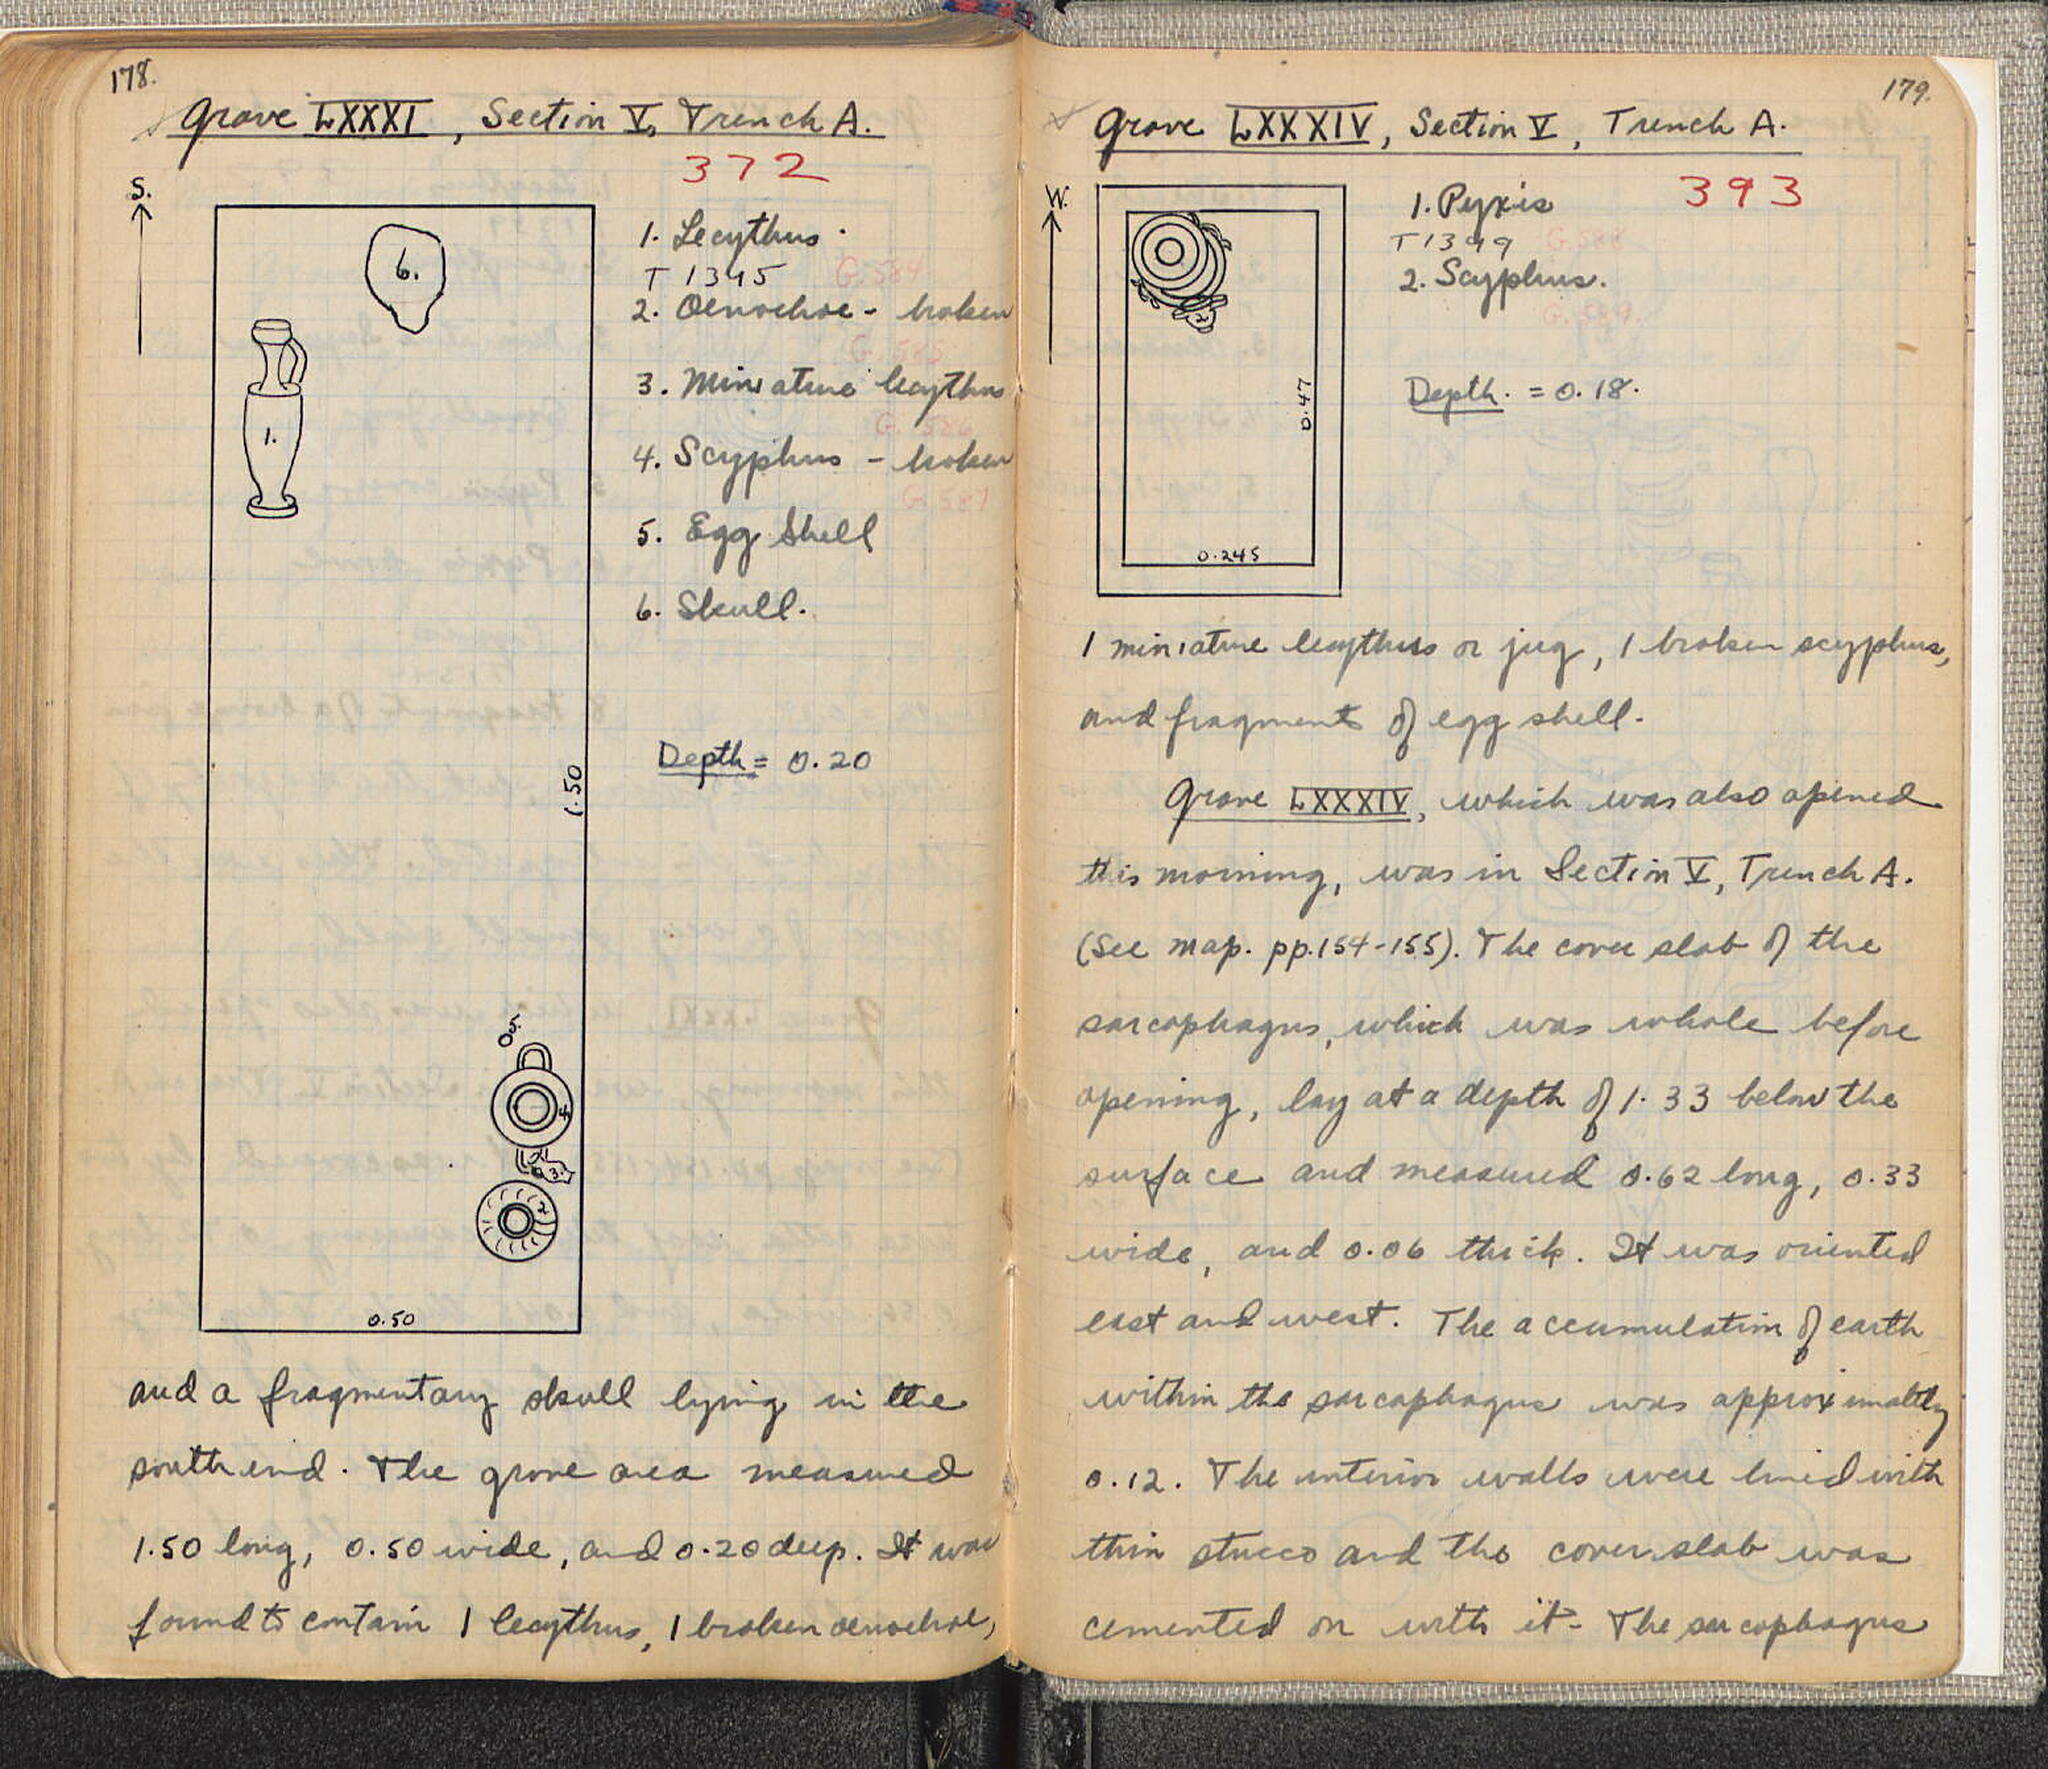 178.
Grave LXXXI, Section V, Trench A.
372
S.
1. Lecythus.
T 1395
G. 584
2. Oenochoe - broken
G. 585
3. Miniature lecythus
G. 586
4. Scyphus - broken
G. 587
5. Egg Shell
6. Skull.
Depth = 0.20
6.
1.
1.50
5.
4
3.
2
0.50
and a fragmentary skull lying in the
south end. The grave area measured
1.50 long, 0.50 wide, and 0.20 deep. It was
found to contain 1 lecythus, 1 broken oenochoe,
179.
Grave LXXXIV, Section V, Trench A.
393
W.
1. Pyxis
T 1399
G. 588
2. Scyphus.
G. 589.
Depth. = 0.18.
2
0.47
0.245
1 miniature lecythus or jug, 1 broken scyphus,
and fragments of egg shell.
Grave LXXXIV, which was also opened
this morning, was in Section V, Trench A.
(See map. pp. 154-155). The cover slab of the
sarcophagus, which was whole before
opening, lay at a depth of 1.33 below the
surface and measured 0.62 long, 0.33
wide, and 0.06 thick. It was oriented
east and west. The accumulation of earth
within the sarcophagus was approximately
0.12. The interior walls were lined with
thin stucco and the cover slab was
cemented on with it. The sarcophagus